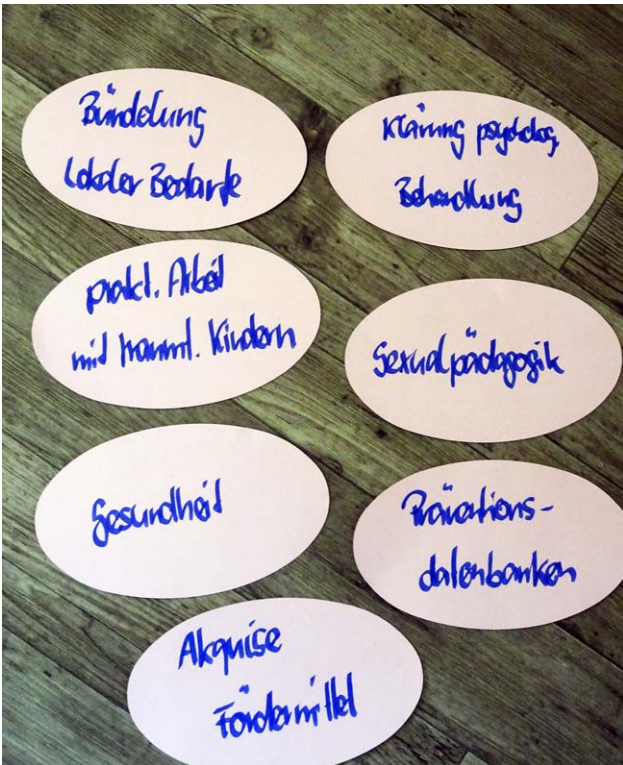 Bündelung
Lokaler Bedarfe
Klärung psycholog.
Behandlung
prakt. Arbeit
mit trauml. Kindern
Sexualpädagogik
Gesundheit
Präventions-
datenbanken
Akquise
Fördermittel